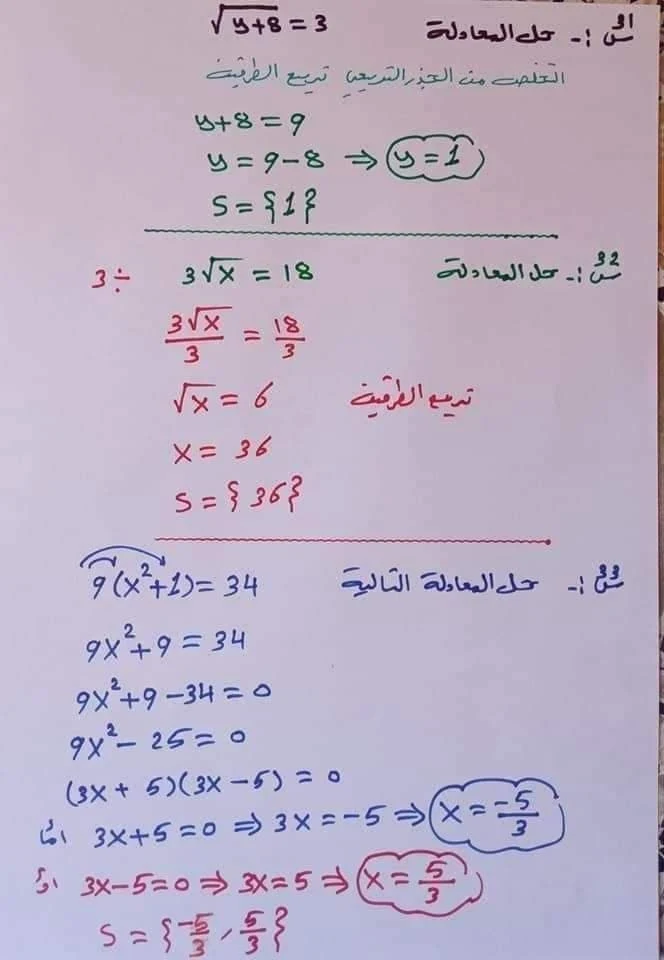 س31 :- حل المعادلة √y+8 = 3
التخلص من الجذر التربيعي تربيع الطرفين
y+8 = 9
y = 9-8 ⇒ y = 1
S = {1}
س32 :- حل المعادلة 3√x = 18 ÷3
3√x/3 = 18/3
√x = 6 تربيع الطرفين
x = 36
S = {36}
س33 :- حل المعادلة التالية 9(x²+1) = 34
9x²+9 = 34
9x²+9-34 = 0
9x²-25 = 0
(3x+5)(3x-5) = 0
اما 3x+5=0 ⇒ 3x=-5 ⇒ x = -5/3
او 3x-5=0 ⇒ 3x=5 ⇒ x = 5/3
S = {-5/3 , 5/3}